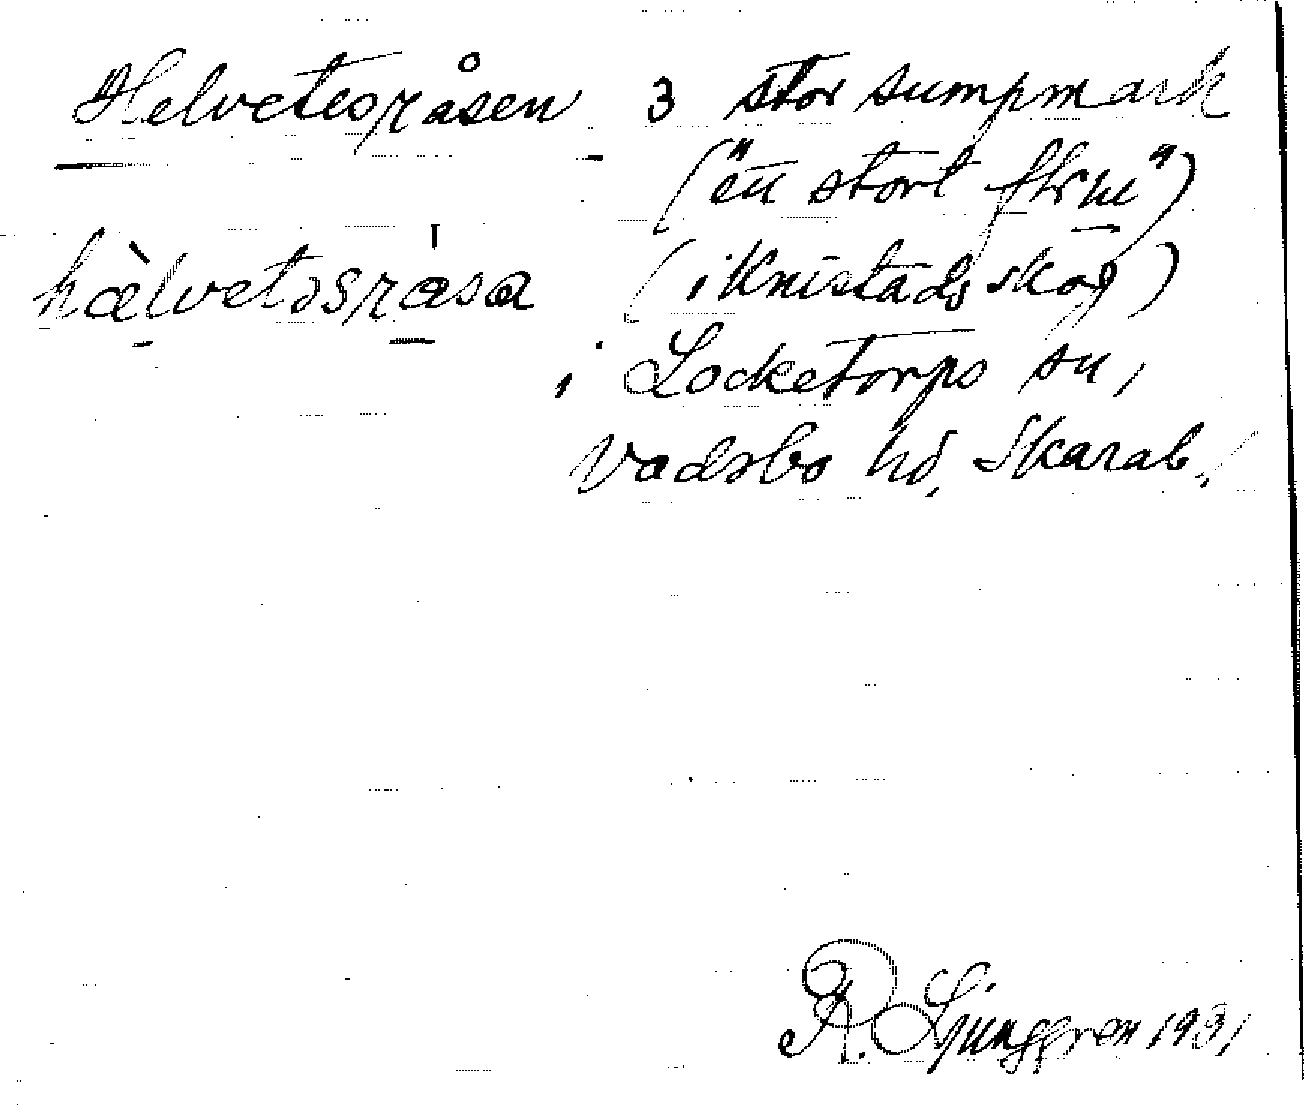 Helvetesråsen 3 stor sumpmark
("ett stort
hælvetəsråsa (i Knistads skog)
i Locketorps sn,
Vadsbo hd, Skarab.
R. Ljunggren 1931